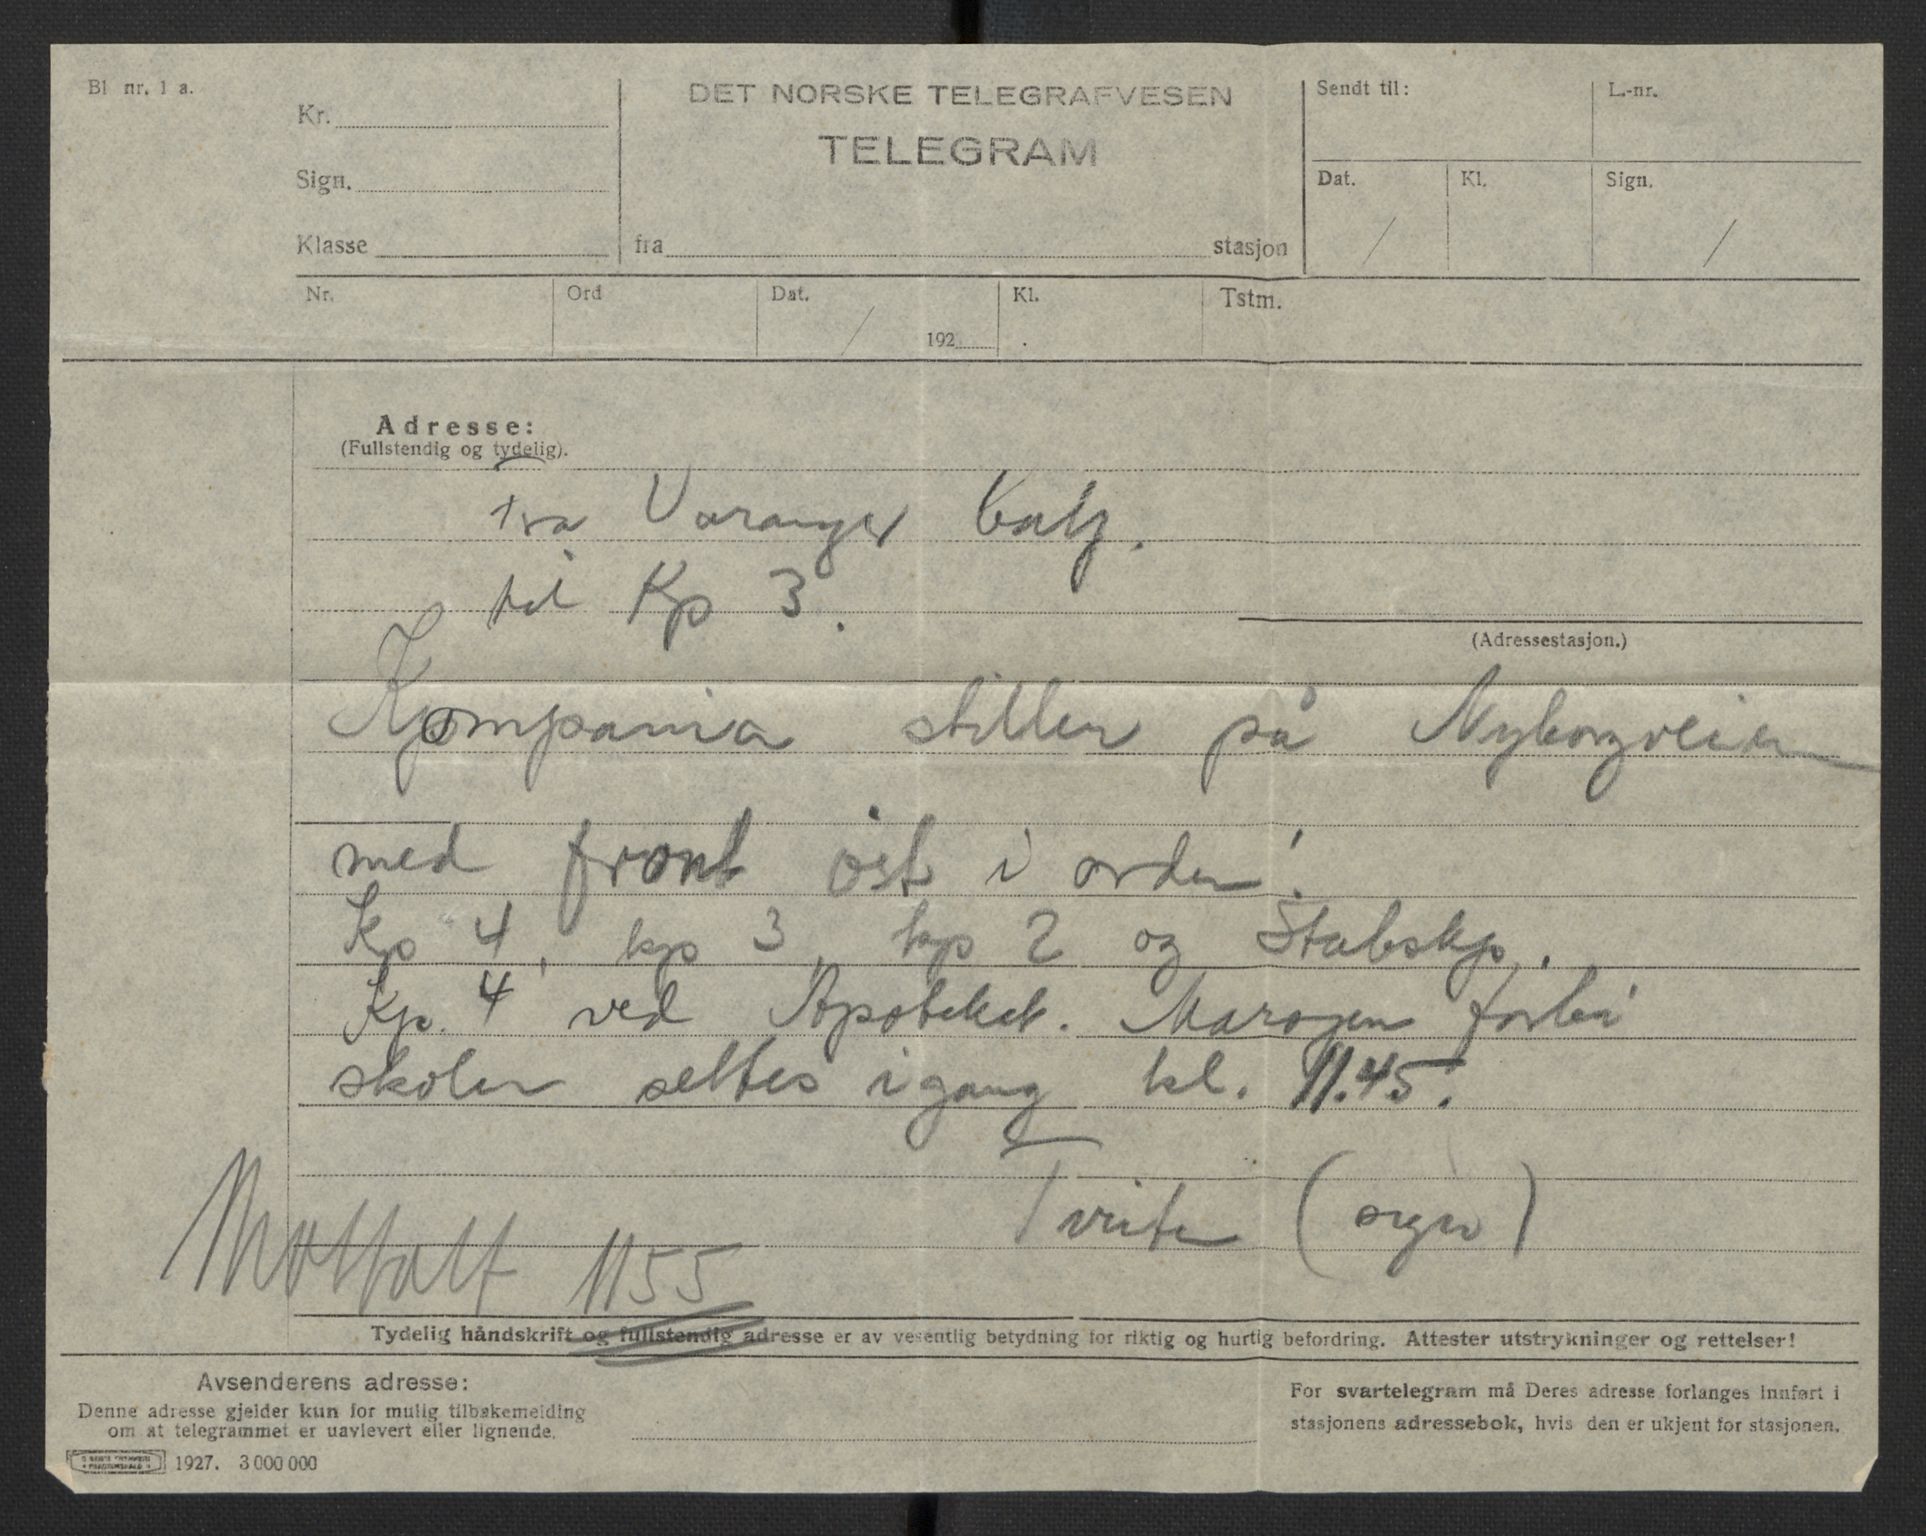 Bl nr. 1 a.
Kr.
Sign.
Klasse
DET NORSKE TELEGRAFVESEN
TELEGRAM
fra stasjon
Sendt til:
L.-nr.
Dat.
Kl.
Sign.
Nr.
Ord
Dat.
192
Kl.
Tstm.
Adresse:
(Fullstendig og tydelig).
Fra Varanger batj.
til Kp 3.
(Adressestasjon.)
Kompania stiller på Nyborgveien
med front öst i orden:
Kp 4, kp 3, kp 2 og Stabskp.
Kp. 4 ved Apoteket. Marsjen forbi
skolen settes igang kl. 11.45.
Tveiten (sign)
Mottatt 1155
Tydelig håndskrift og fullstendig adresse er av vesentlig betydning for riktig og hurtig befordring. Attester utstrykninger og rettelser!
Avsenderens adresse:
Denne adresse gjelder kun for mulig tilbakemelding
om at telegrammet er uavlevert eller lignende.
For svartelegram må Deres adresse forlanges innført i
stasjonens adressebok, hvis den er ukjent for stasjonen.
1927. 3 000 000